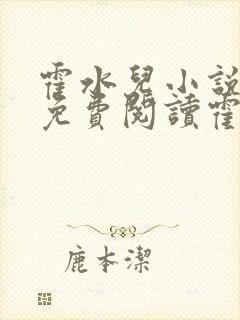 霍水兒小說
免費閱讀霍
鹿本潔